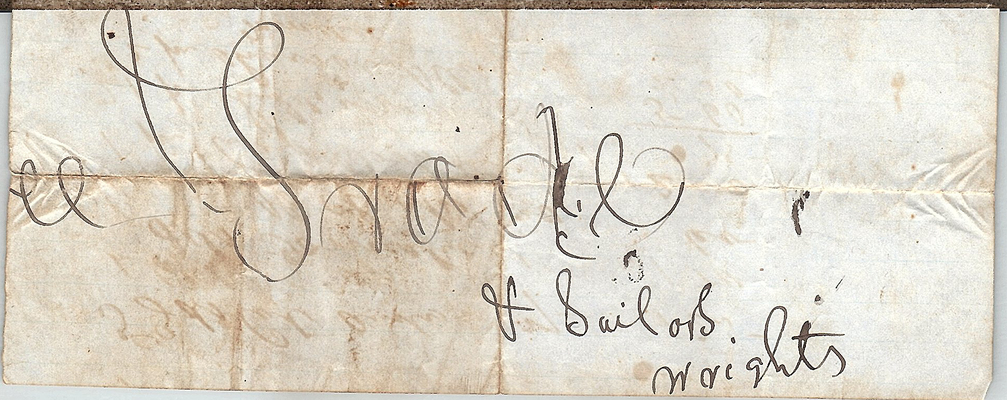 ee Trade
& Sailors
Wrights